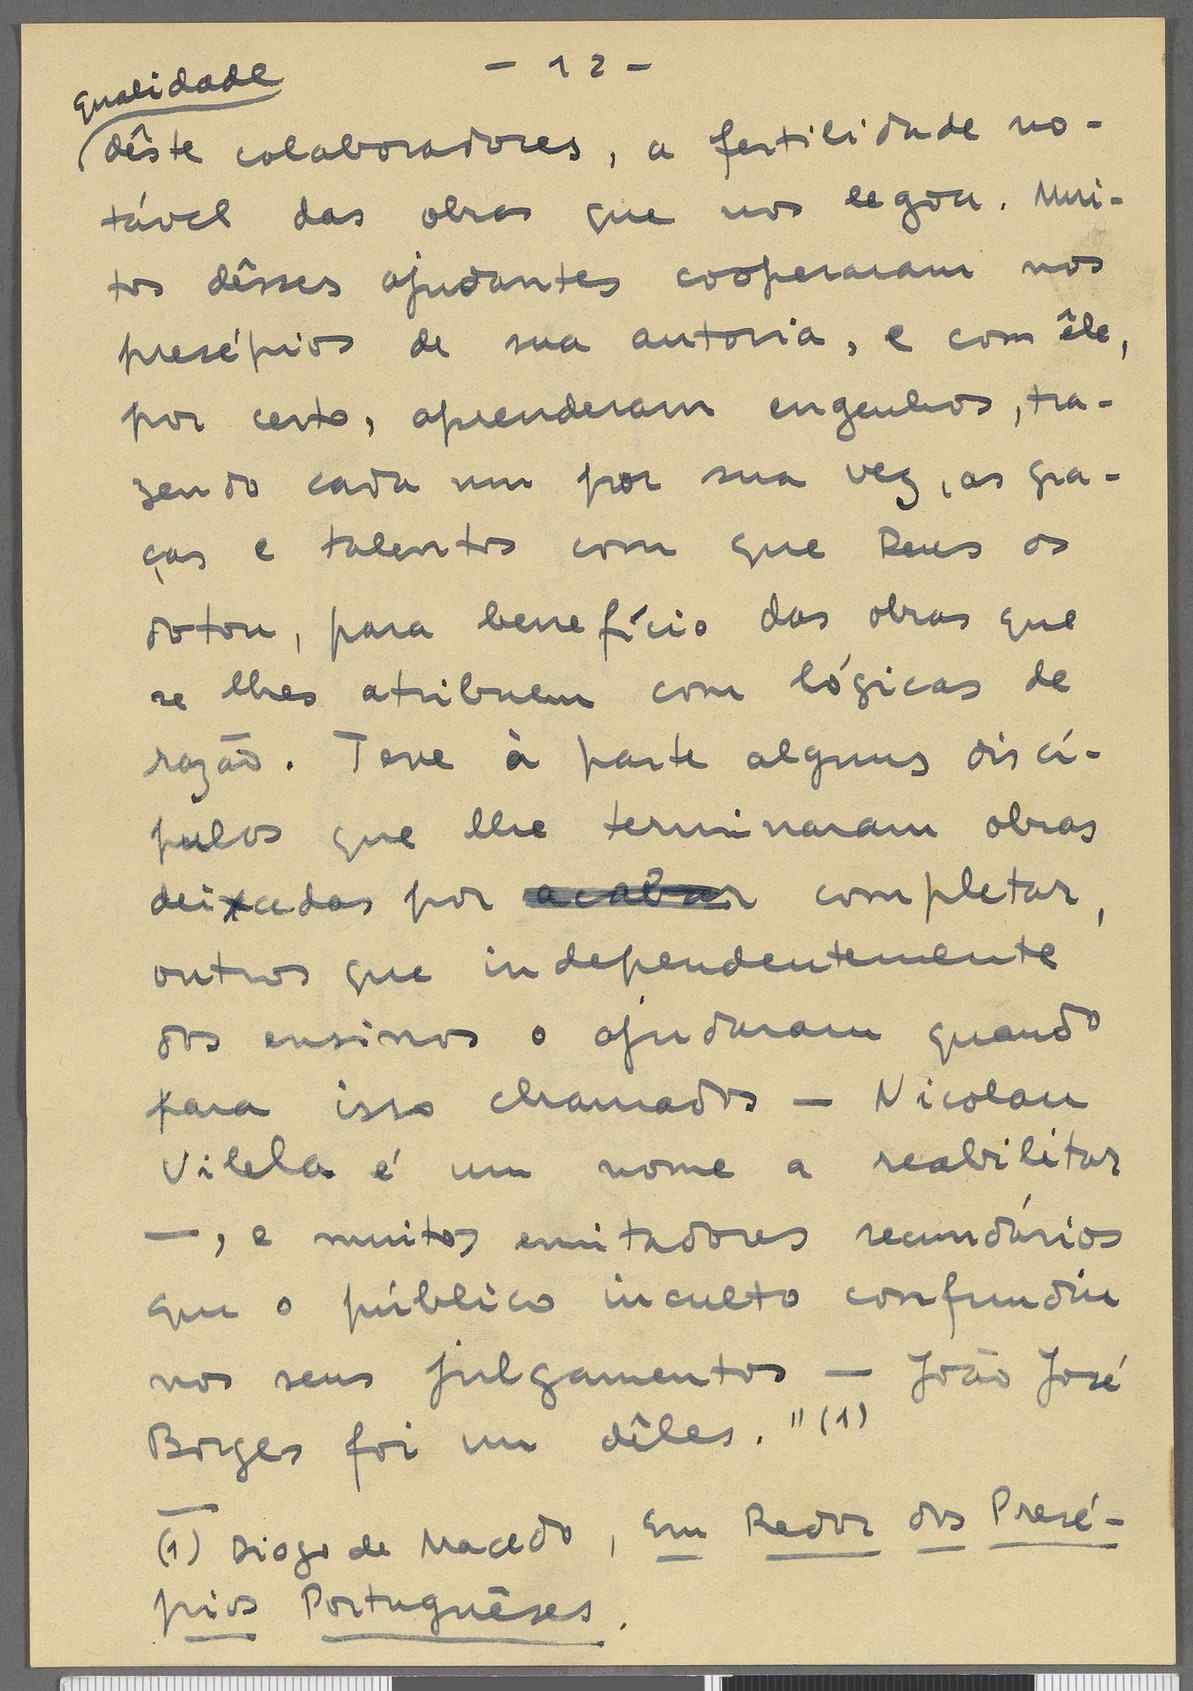 - 12 -
qualidade
dêste colaboradores, a fertilidade no-
tável das obras que nos legou. Mui-
tos dêsses ajudantes cooperaram nos
presépios de sua autoria, e com êle,
por certo, aprenderam engenhos, tra-
zendo cada um por sua vez, as gra-
ças e talentos com que Deus os
dotou, para benefício das obras que
se lhes atribuem com lógicas de
razão. Teve à parte alguns discí-
pulos que lhe terminaram obras
deixadas por acabar completar,
outros que independentemente
dos ensinos o ajudaram quando
para isso chamados — Nicolau
Vilela é um nome a reabilitar
—, e muitos emitadores secundários
que o público inculto confundiu
nos seus julgamentos — João José
Borges foi um dêles." (1)
(1) Diogo de Macedo, Em Redor dos Presé-
pios Portuguêses.